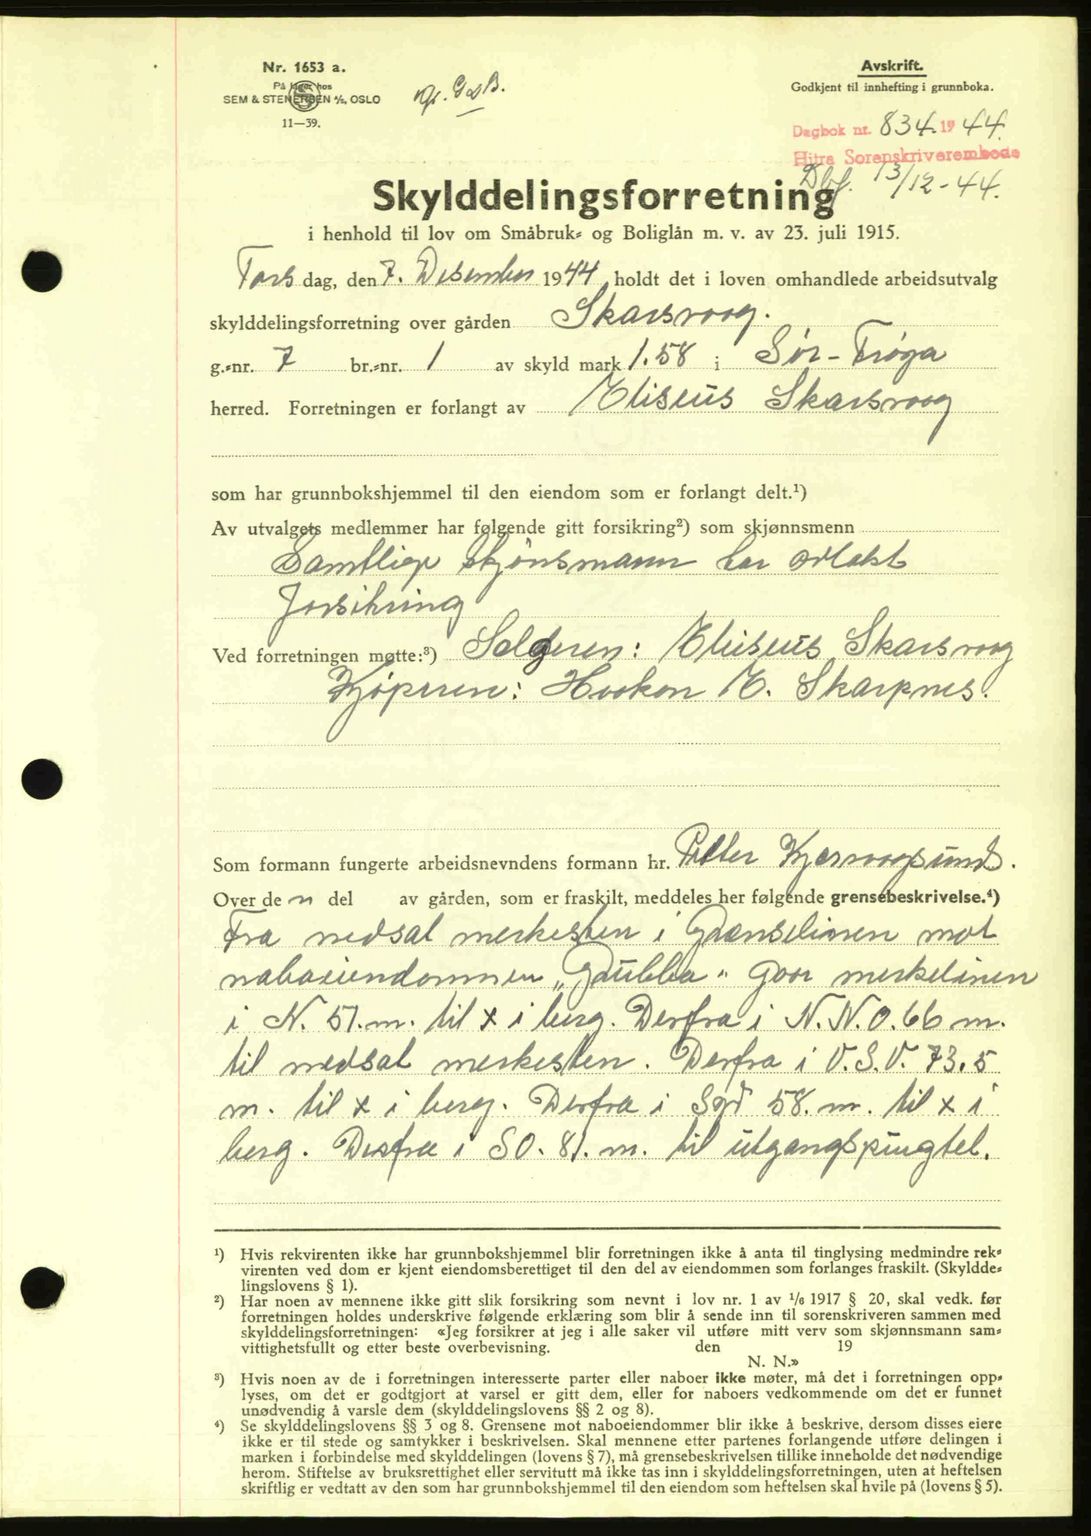 Nr. 1653 a.
På lager hos
SEM & STENERSEN A/S, OSLO
11—39.
Avskrift.
Godkjent til innhefting i grunnboka.
Dagbok nr. 834. 1944.
Hitra Sorenskriverembede
Dbf. 13/12-44.
Skylddelingsforretning
i henhold til lov om Småbruk- og Boliglån m. v. av 23. juli 1915.
Torsdag, den 7. Desember 1944 holdt det i loven omhandlede arbeidsutvalg
skylddelingsforretning over gården Skarsvaag.
g.-nr. 7 br.-nr. 1 av skyld mark 1.58 i Sør-Frøya
herred. Forretningen er forlangt av Eliseus Skarsvaag
som har grunnbokshjemmel til den eiendom som er forlangt delt.¹)
Av utvalgets medlemmer har følgende gitt forsikring²) som skjønnsmenn
Samtlige skjönsmann har avlakt
forsikring
Ved forretningen møtte:³) Selgeren: Eliseus Skarsvaag
Kjöperen: Haakon E. Skarpnes.
Som formann fungerte arbeidsnevndens formann hr. Petter Kjervaagsund.
Over den del av gården, som er fraskilt, meddeles her følgende grensebeskrivelse.⁴)
Fra nedsat merkesten i Grænselinen mot
naboeiendommen „Grubba" gaar merkelinen
i N. 51. m. til x i berg. Derfra i N.N.O. 66 m.
til nedsat merkesten. Derfra i V.S.V. 73.5
m. til x i berg. Derfra i Syd 58. m. til x i
berg. Derfra i SO. 81. m. til utgangspungtet.
¹) Hvis rekvirenten ikke har grunnbokshjemmel blir forretningen ikke å anta til tinglysing medmindre rek-
virenten ved dom er kjent eiendomsberettiget til den del av eiendommen som forlanges fraskilt. (Skyldde-
lingslovens § 1).
²) Har noen av mennene ikke gitt slik forsikring som nevnt i lov nr. 1 av 1/6 1917 § 20, skal vedk. før
forretningen holdes underskrive følgende erklæring som blir å sende inn til sorenskriveren sammen med
skylddelingsforretningen: «Jeg forsikrer at jeg i alle saker vil utføre mitt verv som skjønnsmann sam-
vittighetsfullt og etter beste overbevisning. den 19
N. N.»
³) Hvis noen av de i forretningen interesserte parter eller naboer ikke møter, må det i forretningen opp-
lyses, om det er godtgjort at varsel er gitt dem, eller for naboers vedkommende om det er funnet
unødvendig å varsle dem (skylddelingslovens §§ 2 og 8).
⁴) Se skylddelingslovens §§ 3 og 8. Grensene mot naboeiendommer blir ikke å beskrive, dersom disses eiere
ikke er til stede og samtykker i beskrivelsen. Skal mennene etter partenes forlangende utføre delingen i
marken i forbindelse med skylddelingen (lovens § 7), må grensebeskrivelsen tillike inneholde det nødvendige
herom. Stiftelse av bruksrettighet eller servitutt må ikke tas inn i skylddelingsforretningen, uten at heftelsen
skriftlig er vedtatt av den som har grunnbokshjemmel til den eiendom som heftelsen skal hvile på (lovens § 5).